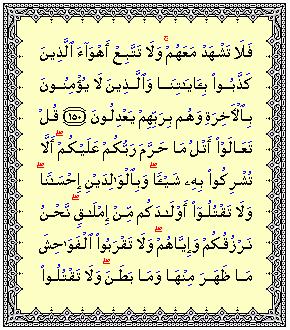 فَلَا تَشْهَدْ مَعَهُمْ ۚ وَلَا تَتَّبِعْ أَهْوَآءَ ٱلَّذِينَ
كَذَّبُوا۟ بِـَٔايَـٰتِنَا وَٱلَّذِينَ لَا يُؤْمِنُونَ
بِٱلْـَٔاخِرَةِ وَهُم بِرَبِّهِمْ يَعْدِلُونَ ﴿١٥٠﴾ قُلْ
تَعَالَوْا۟ أَتْلُ مَا حَرَّمَ رَبُّكُمْ عَلَيْكُمْ ۖ أَلَّا
تُشْرِكُوا۟ بِهِۦ شَيْـًٔا ۖ وَبِٱلْوَٰلِدَيْنِ إِحْسَـٰنًا ۖ
وَلَا تَقْتُلُوٓا۟ أَوْلَـٰدَكُم مِّنْ إِمْلَـٰقٍ ۖ نَّحْنُ
نَرْزُقُكُمْ وَإِيَّاهُمْ ۖ وَلَا تَقْرَبُوا۟ ٱلْفَوَٰحِشَ
مَا ظَهَرَ مِنْهَا وَمَا بَطَنَ ۖ وَلَا تَقْتُلُوا۟